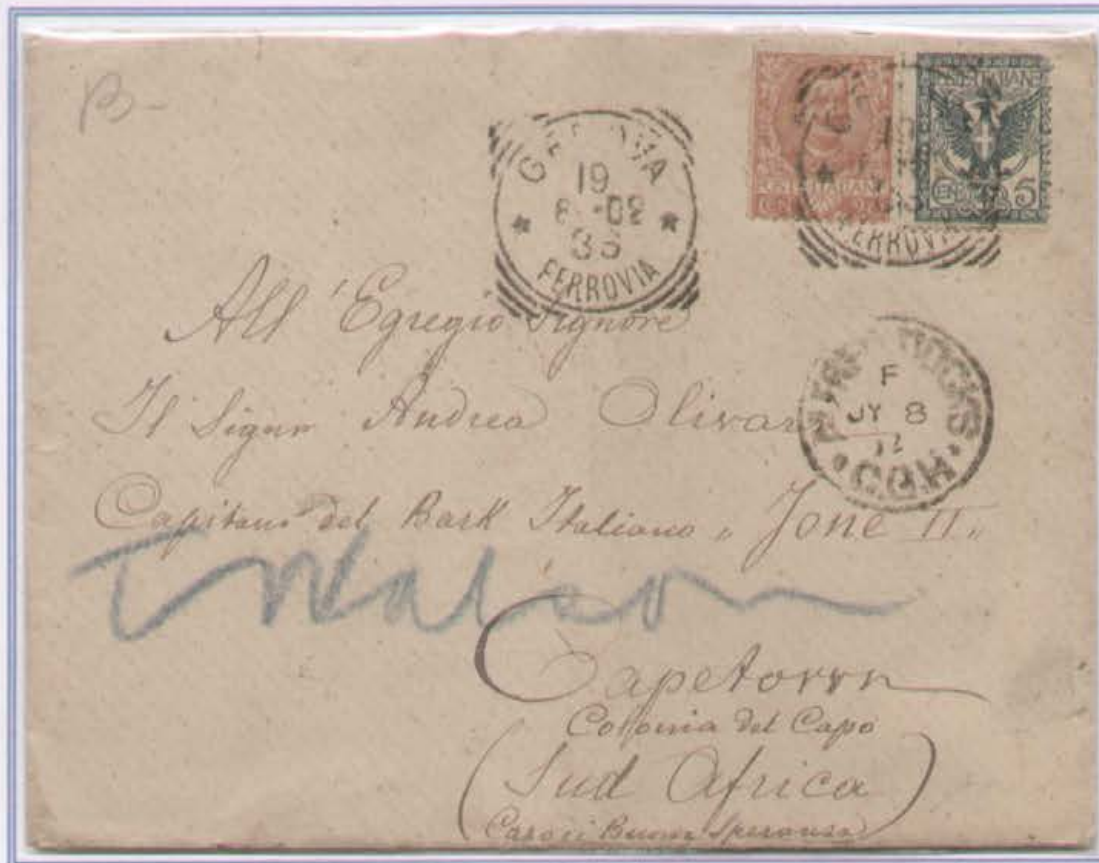 B-
19
6 -02
3S
FERROVIA
POSTE ITALIANE
POSTE ITALIANE
CENT
5
FERROVIA
All' Egregio Signore
Il Signor Andrea Olivari
Capitano del Bark Italiano „ Jone II „
F
JY 8
DOCKS
C.G.H.
Capetown
Colonia del Capo
(Sud Africa)
(Capo di Buona Speranza)